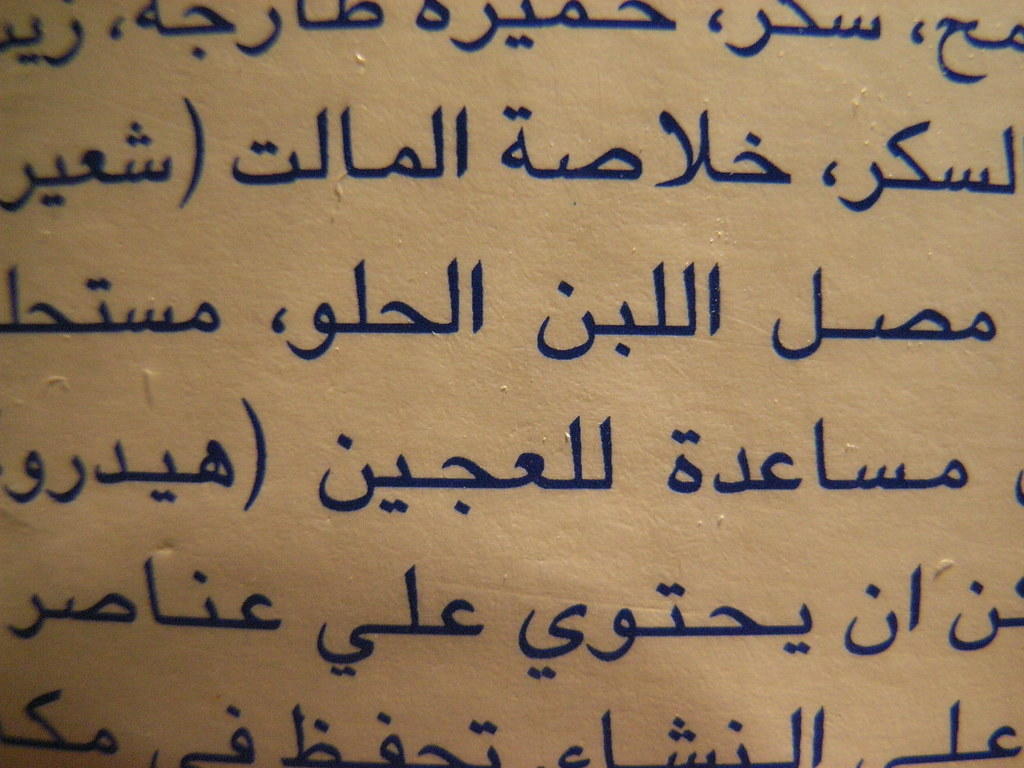 سكر، خميرة طازجة،
السكر، خلاصة المالت (شعير
مصل اللبن الحلو، مستحل
مساعدة للعجين (هيدرو
ان يحتوي علي عناصر
علي النشاء. تحفظ في مكا